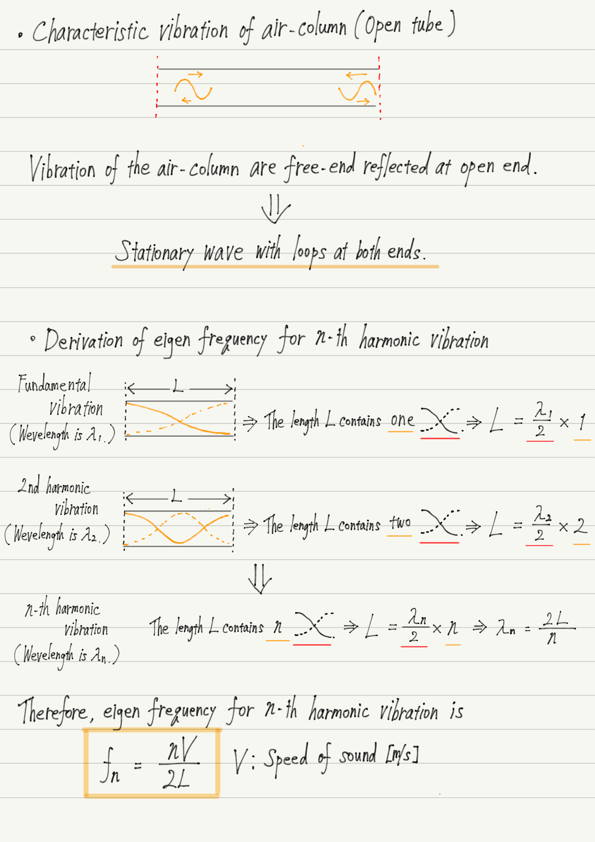 • Characteristic vibration of air-column (Open tube)
Vibration of the air-column are free-end reflected at open end.
⇓
Stationary wave with loops at both ends.
• Derivation of eigen frequency for n-th harmonic vibration
Fundamental
vibration
(Wevelength is λ₁.)
L
⇒ The length L contains one ⇒ L = λ₁/2 × 1
2nd harmonic
vibration
(Wevelength is λ₂.)
L
⇒ The length L contains two ⇒ L = λ₂/2 × 2
⇓
n-th harmonic
vibration
(Wevelength is λn.)
The length L contains n ⇒ L = λn/2 × n ⇒ λn = 2L/n
Therefore, eigen frequency for n-th harmonic vibration is
fn = nV/2L V: Speed of sound [m/s]